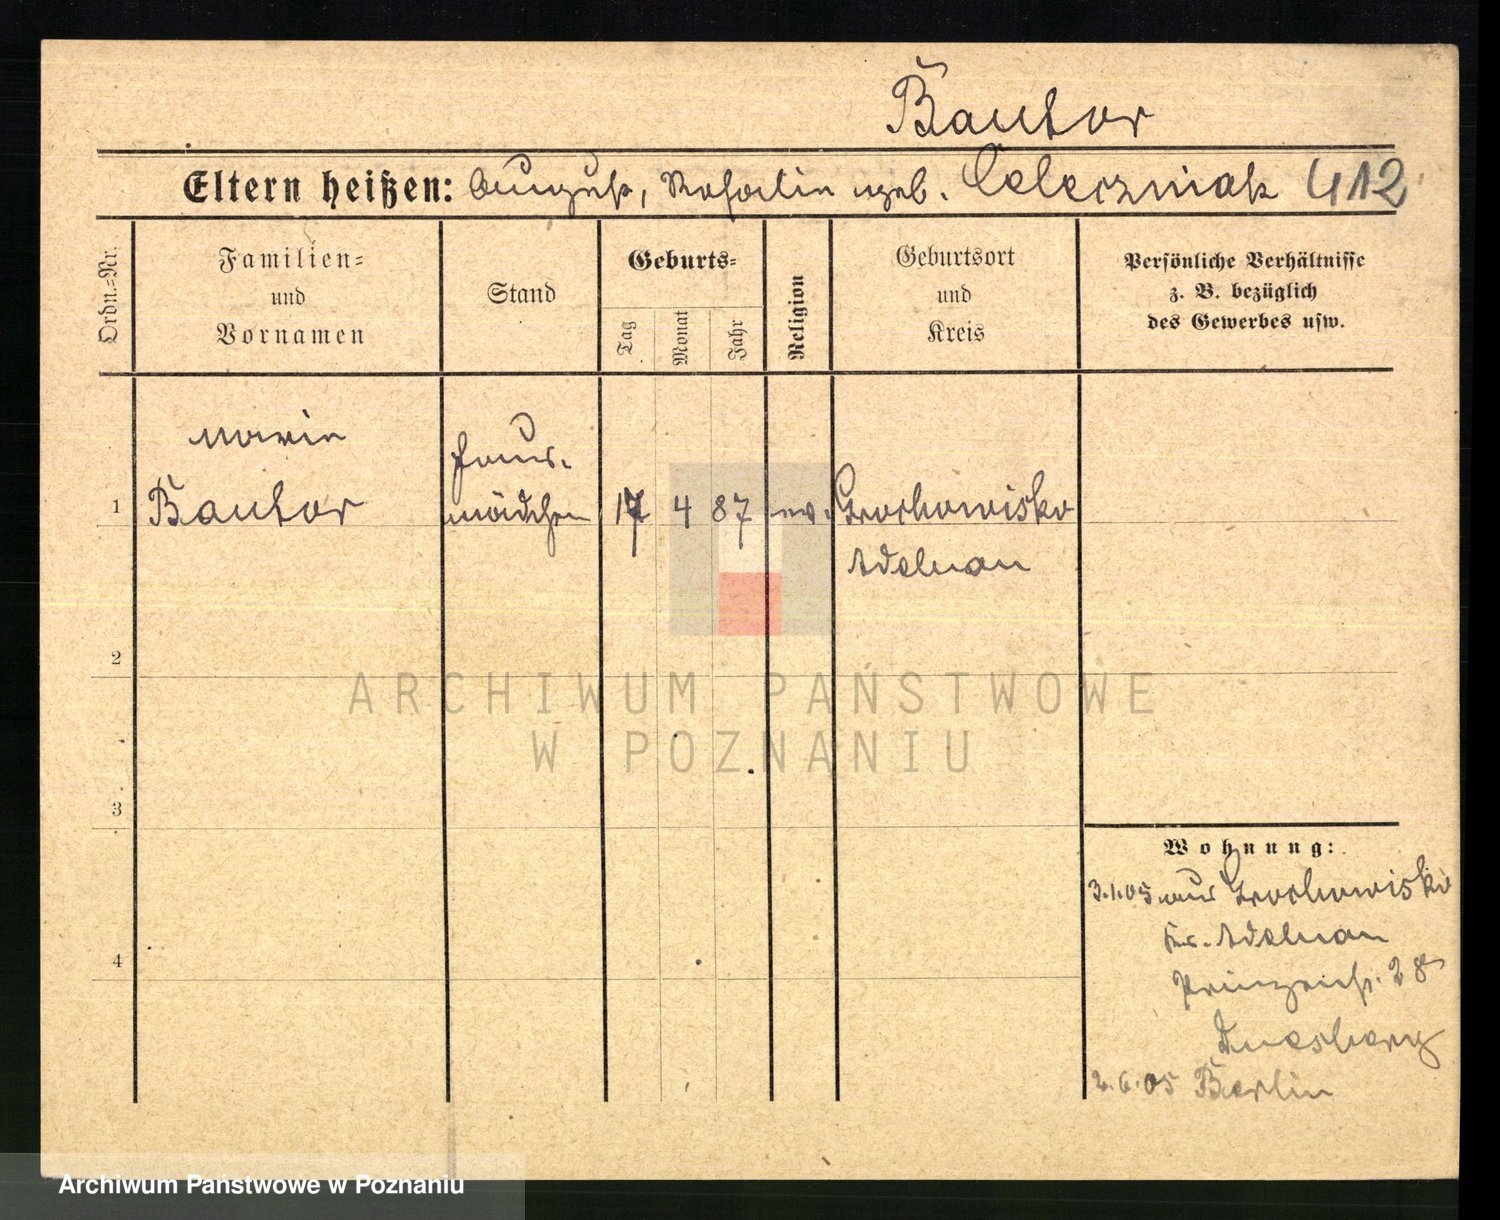 Bautor
Eltern heißen: August, Rosalin geb. Celerzniak 412
Ordn.-Nr.
Familien-
und
Vornamen
Stand
Geburts-
Tag
Monat
Jahr
Religion
Geburtsort
und
Kreis
Persönliche Verhältnisse
z. B. bezüglich
des Gewerbes usw.
Marie
Haus-
1 Bautor mädchen 17 4 87 ev. Grochowisko
Adelnau
2
ARCHIWUM PAŃSTWOWE
W POZNANIU
3
Wohnung:
3.1.05 aus Grochowisko
Kr. Adelnau
4
Prinzenstr. 28
2.6.05 Berlin
Archiwum Państwowe w Poznaniu